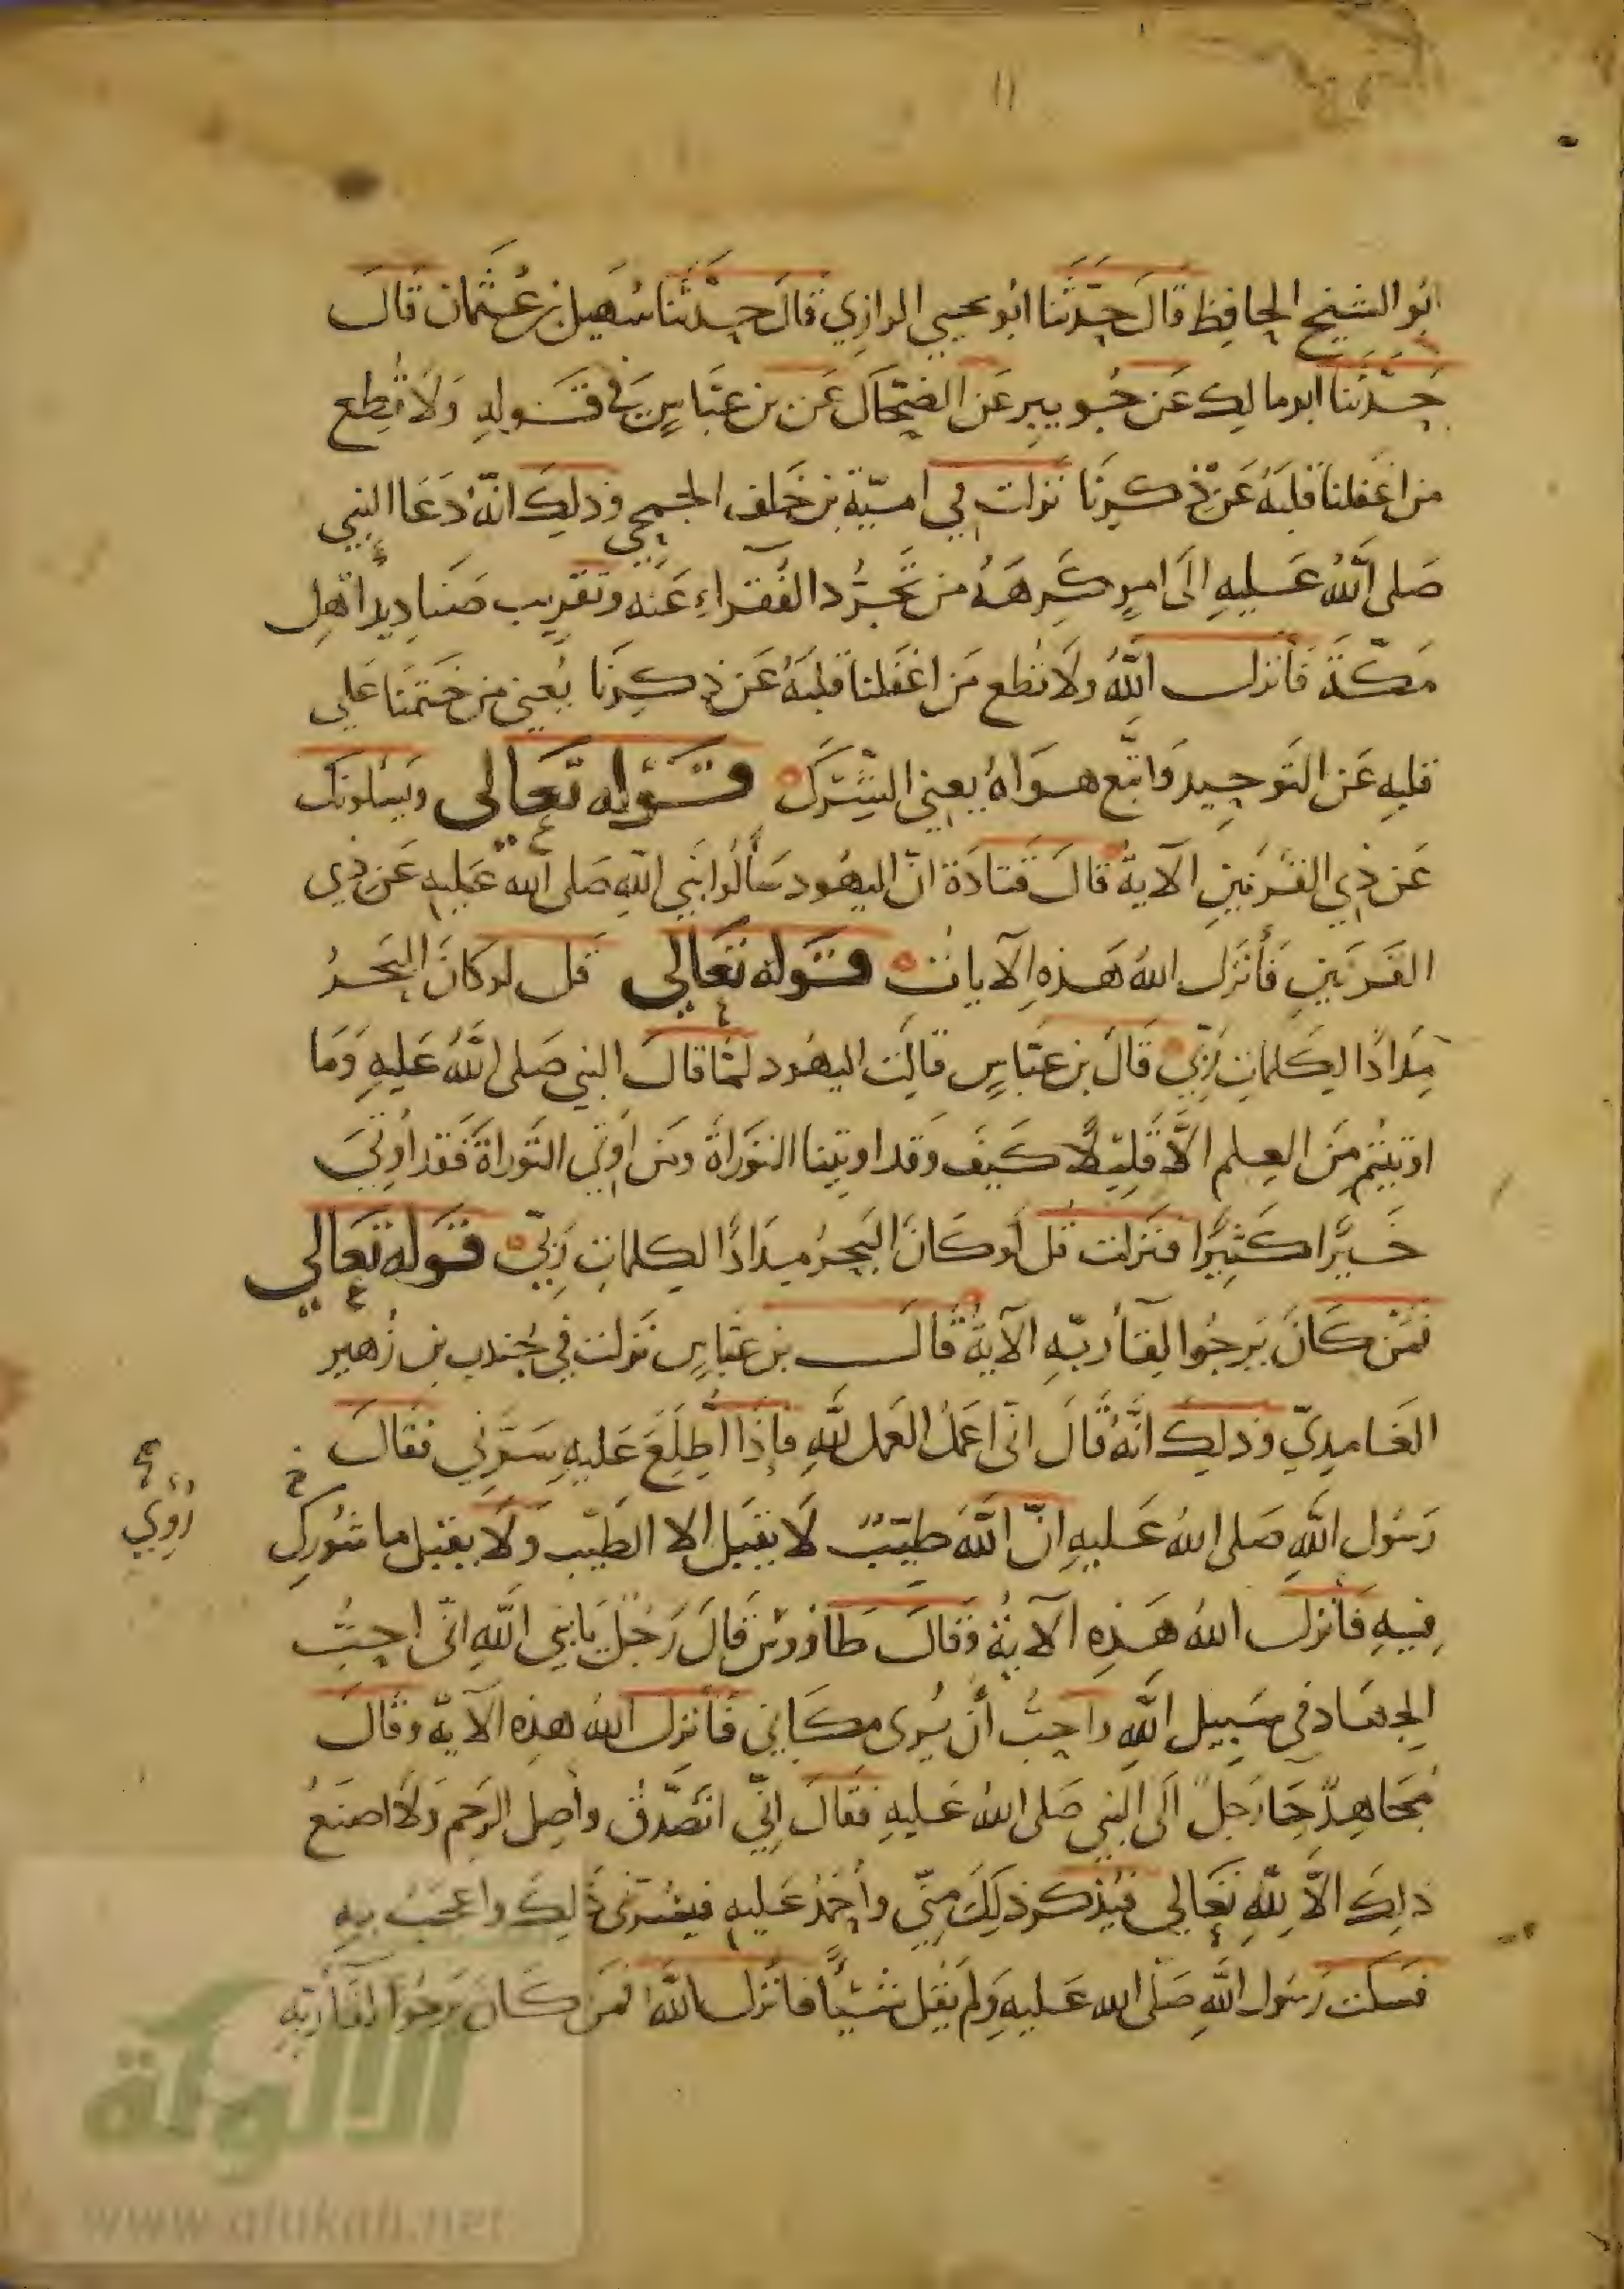 ابُو الشيخ الحافِظ قالَ حدّثنا ابُو يحيي الرازِي قالَ حدّثنا سُهيل بن عُثمان قالَ
حَدّثنا ابو مالك عَن جُويبر عَن الضحّاك عَن بن عبّاسٍ في قَوله وَلَا تُطِع
من اغفلنا قلبَهُ عَن ذكرنَا نزلت في اميّة بن خَلف الجمحي وذلِكَ انّهُ دَعَا النبي
صَلى اللهُ عَليهِ الَى امرٍ كَرِهَهُ من تَجرُّد الفُقراءِ عَنه وتقريب صَناديد اهلِ
مَكّةَ فأنزل اللهُ ولَا تُطع مَن اغفَلنا قلبَهُ عَن ذِكرِنَا يُعني من ختَمنَا عَلي
قلبهِ عَن التَوحِيد وَاتّبع هَوَاهُ يعني الشّرك قَوله تعَالى ويَسْلونك
عَن ذِي القَرنينِ الآية قالَ قتادَة انّ اليهُود سَألُوا نَبي اللهِ صَلى الله عَليهِ عَن ذي
القَرنَينِ فَأنزَل اللهُ هَذهِ الآيات قَوله تعَالي قل لو كانَ البَحرُ
مِدَادًا لِكَلماتِ رَبّي قَالَ بن عبّاسٍ قالَت اليهُود لمّا قالَ النبي صَلى اللهُ عَليهِ وَمَا
اوتيتُم مِنَ العِلم الّا قلِيلًا كَيفَ وَقد اوتينا التورَاةَ ومَن اُوتي التَورَاةَ فَقد اُوتيَ
خَيرًا كَثِيرًا فنَزلت قُل لَو كَانَ البَحرُ مِدَادًا لكلماتِ رَبّي قَوله تعَالي
فَمَن كَانَ يَرجُوا لِقاءَ ربّهِ الآيةُ قَالَ بن عَبّاسٍ نَزلت في جُندب بن زُهير
الغَامِدِيّ وَذلِكَ انَّهُ قالَ انّي اعمَلُ العَمل للّهِ فإذَا اُطلِعَ عَليهِ سَرَّني فقالَ
رَسُول اللهِ صَلى اللهُ عَليهِ انّ اللهَ طيّبٌ لَا يقبَل الا الطَيّب ولَا يقبل ما شُورِك
رُوي
فِيهِ فأنزل اللهُ هَذِه الآيةُ وَقالَ طَاؤوس قالَ رَجُلٌ يَا نبي اللهِ انّي احِبُّ
الجِهَاد في سَبِيل اللهِ وَاحِبُّ أن يُرى مكَاني فَأنزل اللهُ هذِه الآيةَ وقالَ
مُجَاهِدٌ جَا رَجلٌ الَى النبي صَلى اللهُ عَليهِ فقالَ اِنّي اتَصَدّقُ واصِل الرَحِم وَلَا اصنَعُ
ذلِكَ الّا للهِ تعَالي فيُذكر ذلِكَ مِنّي واُحمَدُ عَليهِ فيسُرني ذَلِكَ واعجَبُ بهِ
فسكت رَسُول اللهِ صَلى الله عَليهِ وَلَم يَقُل شَيئًا فأنزل اللهُ فمَن كَانَ يَرجُوا لقَاءَ ربّهِ
الألوكة
www.alukah.net